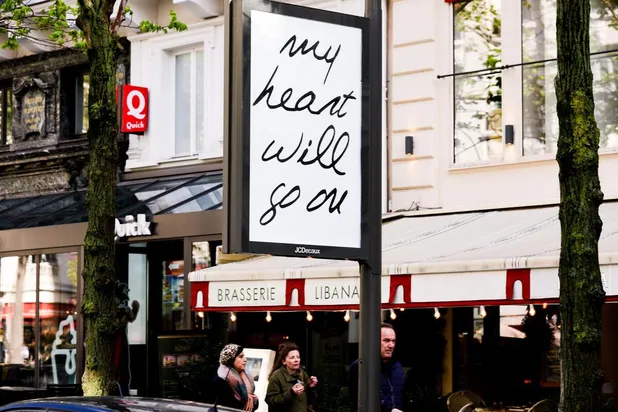 my
heart
will
go on
JCDecaux
Q
Quick
uick
BRASSERIE
LIBANA